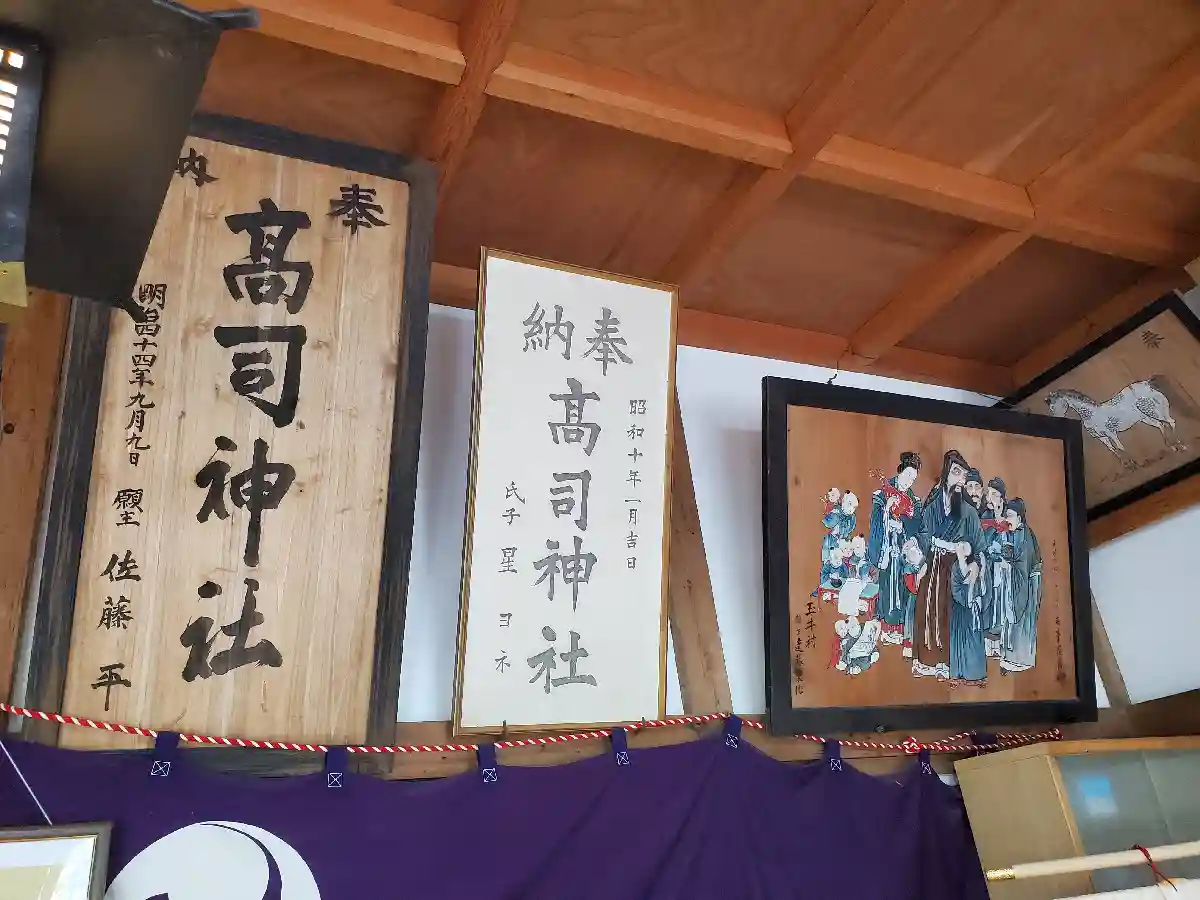 奉納
髙司神社
明治四十四年九月九日 願主 佐藤 平
奉納
昭和十年一月吉日
髙司神社
氏子 星 ヨネ
玉井村
奉